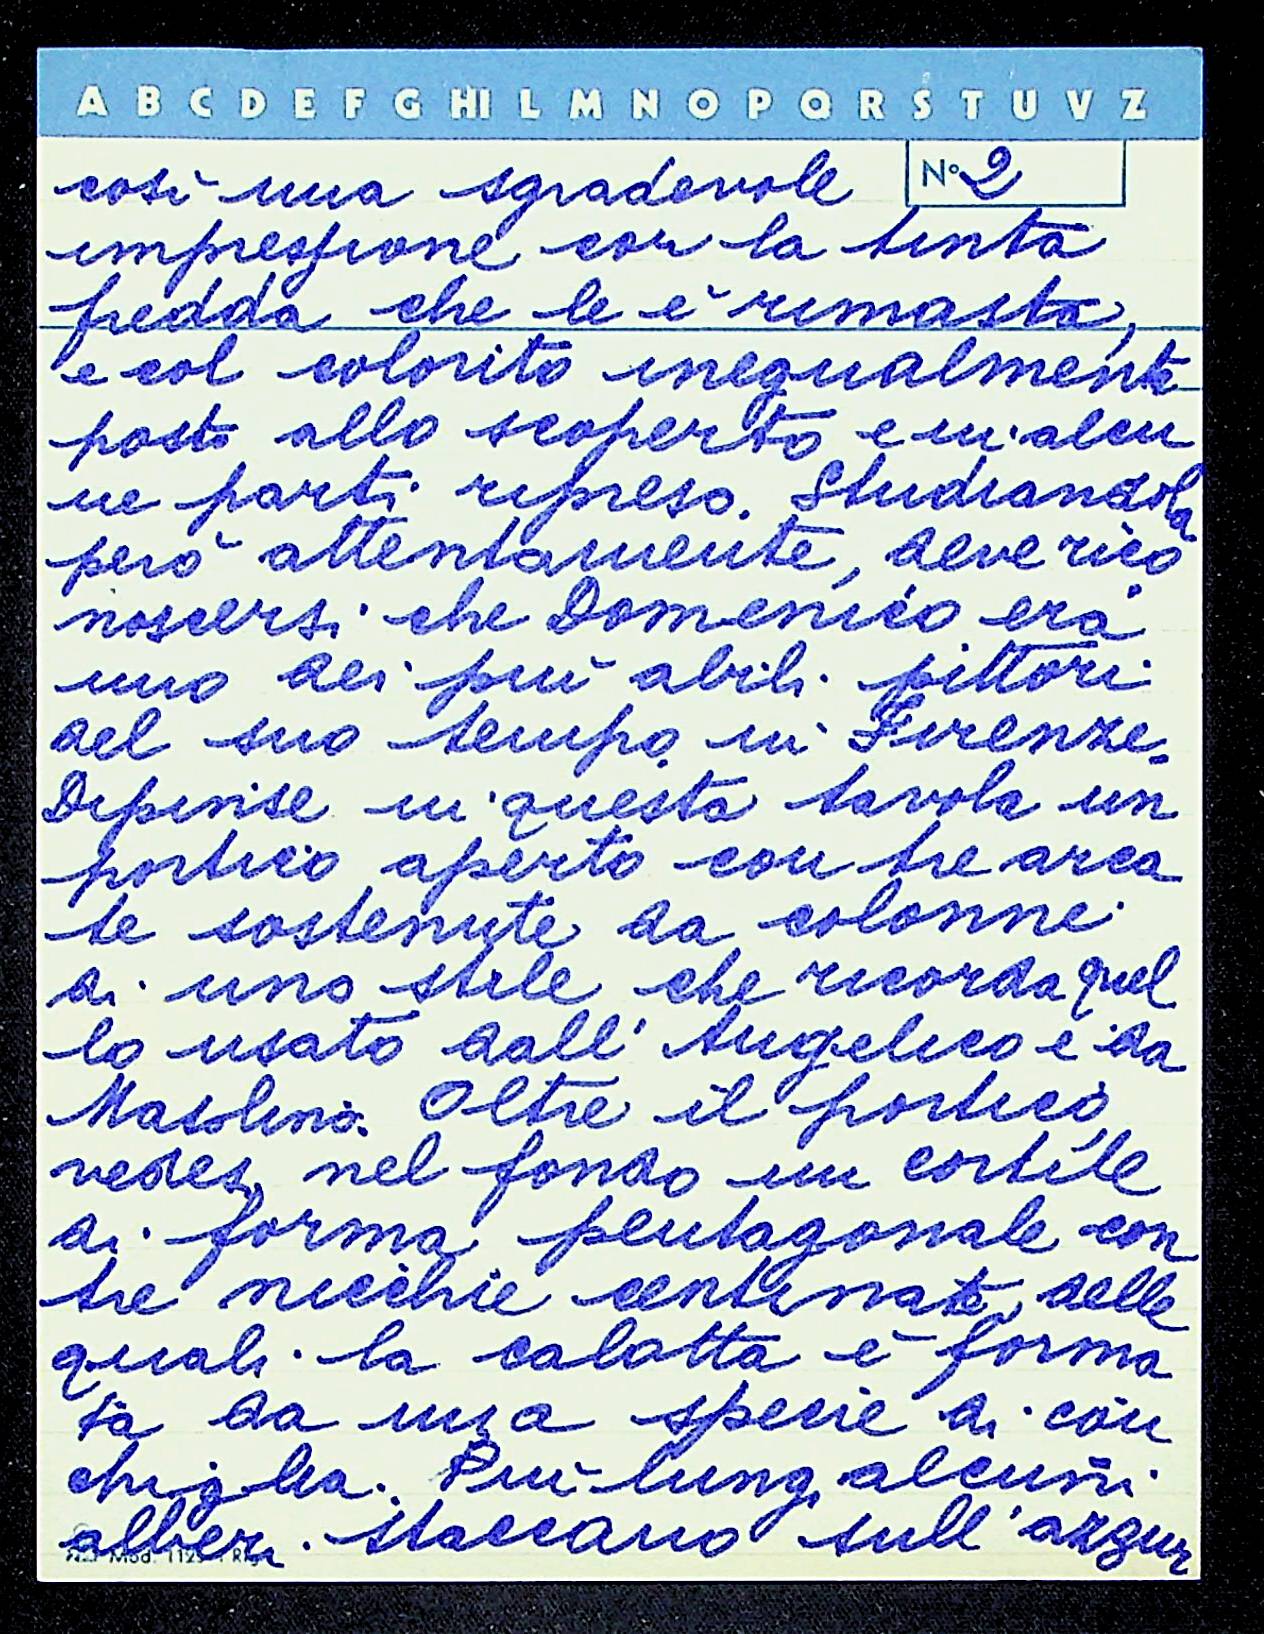 A B C D E F G HI L M N O P Q R S T U V Z
così una sgradevole Nº 2
impressione con la tinta
fredda che le è rimasta,
e col colorito inegualmente
posto allo scoperto e in alcu
ne parti ripreso. Studiandola
però attentamente, deve rico
noscersi che Domenico era
uno dei più abili pittori
del suo tempo in Firenze.
Dipinse in questa tavola un
portico aperto con tre arca
te sostenute da colonne
di uno stile che ricorda quel
lo usato dall'Angelico e da
Masolino. Oltre il portico,
vedesi nel fondo un cortile
di forma pentagonale con
tre nicchie centinate, delle
quali la calotta è forma
ta da una specie di con
chiglia. Più lungi alcuni
alberi staccano sull'azzur
Mod. 112